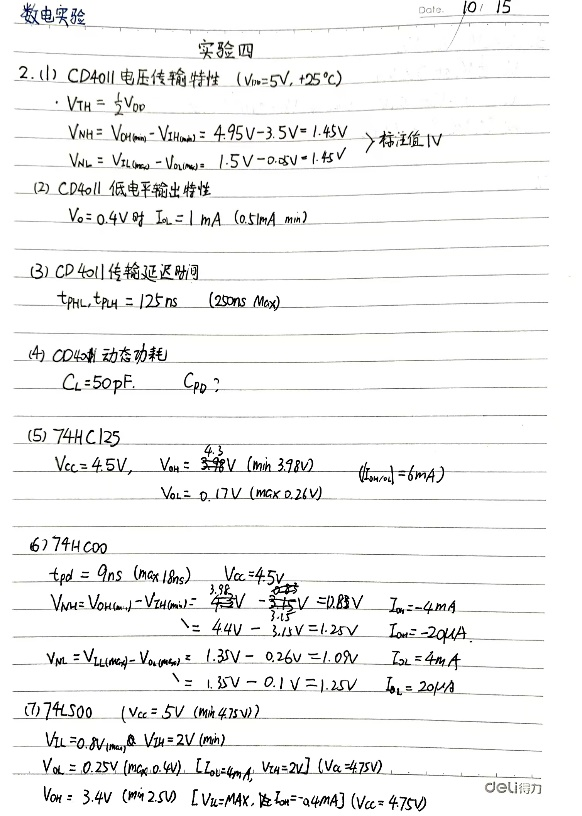 数电实验
Date. 10 / 15
实验四
2.(1) CD4011 电压传输特性 (VDD=5V, +25°C)
· VTH = ½VDD
VNH = VOH(min) - VIH(min) = 4.95V-3.5V = 1.45V
>标注值1V
VNL = VIL(max) - VOL(max) = 1.5V-0.05V=1.45V
(2) CD4011 低电平输出特性
Vo=0.4V时 IOL=1mA (0.51mA min)
(3) CD4011传输延迟时间
tPHL, tPLH = 125ns (250ns Max)
(4) CD4011 动态功耗
CL=50pF. CPD?
(5) 74HC125
4.3
VCC=4.5V, VOH= 3.98V (min 3.98V) (|IOH/OL|=6mA)
VOL= 0.17V (max 0.26V)
(6) 74HC00
tpd = 9ns (max 18ns) VCC=4.5V
3.98
VNH=VOH(min)-VIH(min)= 4.3V - 3.15V =0.83V IOH=-4mA
3.15
= 4.4V - 3.15V=1.25V IOH=-20μA.
VNL = VIL(max)-VOL(max) = 1.35V - 0.26V=1.09V IOL=4mA
= 1.35V - 0.1V=1.25V IOL=20μA
(7) 74LS00 (VCC=5V (min 4.75V))
VIL=0.8V(max) VIH=2V(min)
VOL=0.25V (max 0.4V) [IOL=4mA, VIH=2V] (VCC=4.75V)
VOH= 3.4V (min 2.5V) [VIL=MAX, IOH=-0.4mA] (VCC=4.75V)
deli得力